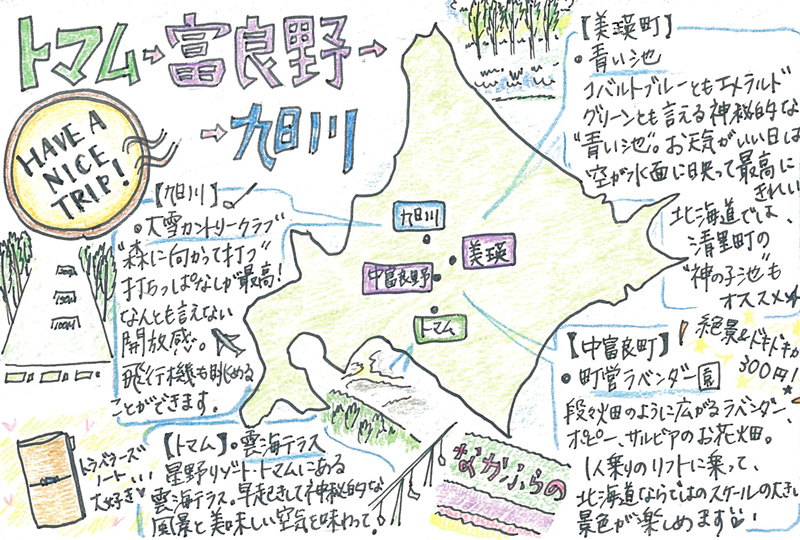 トマム→富良野→
→旭川
HAVE A
NICE
TRIP!
【旭川】
•大雪カントリークラブ
"森に向かって打つ"
打ちっぱなしが最高!
なんとも言えない
開放感。
飛行機も眺める
ことができます。
150Y
100Y
トラベラーズ
ノート
大好き
【トマム】•雲海テラス
星野リゾート・トマムにある
雲海テラス。早起きして神秘的な
風景と美味しい空気を味わって!
旭川
美瑛
中富良野
トマム
なかふらの
【美瑛町】
•青い池
コバルトブルーともエメラルド
グリーンとも言える神秘的な
"青い池"。お天気がいい日は
空が水面に映って最高に
きれい
北海道では、
清里町の
"神の子池"も
オススメ
【中富良町】
絶景&ドキドキが
300円!
•町営ラベンダー園
段々畑のように広がるラベンダー、
ポピー、サルビアのお花畑。
1人乗りのリフトに乗って、
北海道ならではのスケールの大きい
景色が楽しめます!